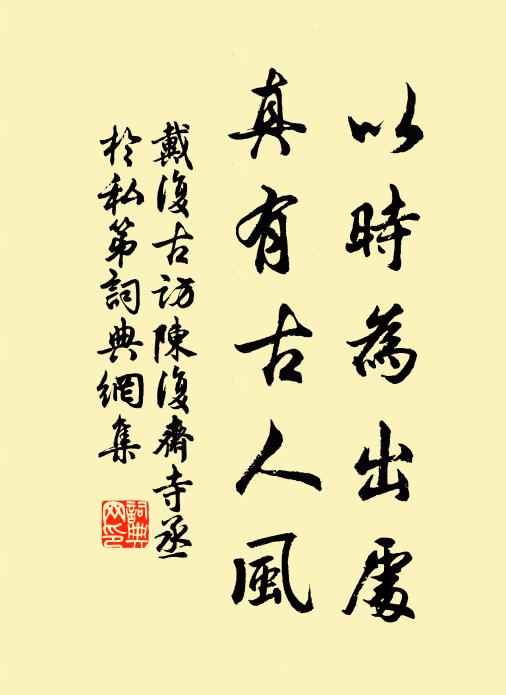 以時為出處
真有古人風
戴復古訪陳復齋寺丞
於私第詞典網集
詞典
网印